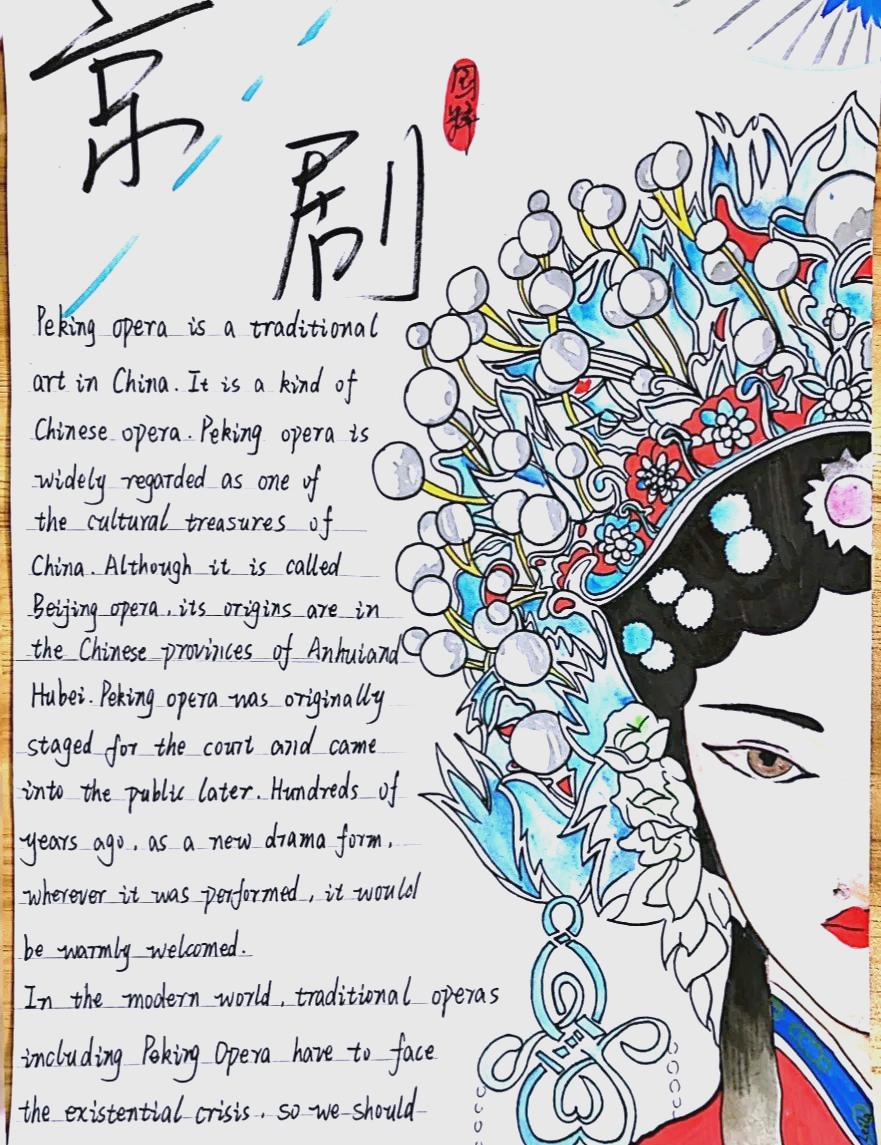 京剧
国粹
Peking opera is a traditional
art in China. It is a kind of
Chinese opera. Peking opera is
widely regarded as one of
the cultural treasures of
China. Although it is called
Beijing opera, its origins are in
the Chinese provinces of Anhuiand
Hubei. Peking opera was originally
staged for the court and came
into the public later. Hundreds of
years ago, as a new drama form,
wherever it was performed, it would
be warmly welcomed.
In the modern world, traditional operas
including Peking Opera have to face
the existential crisis, so we should